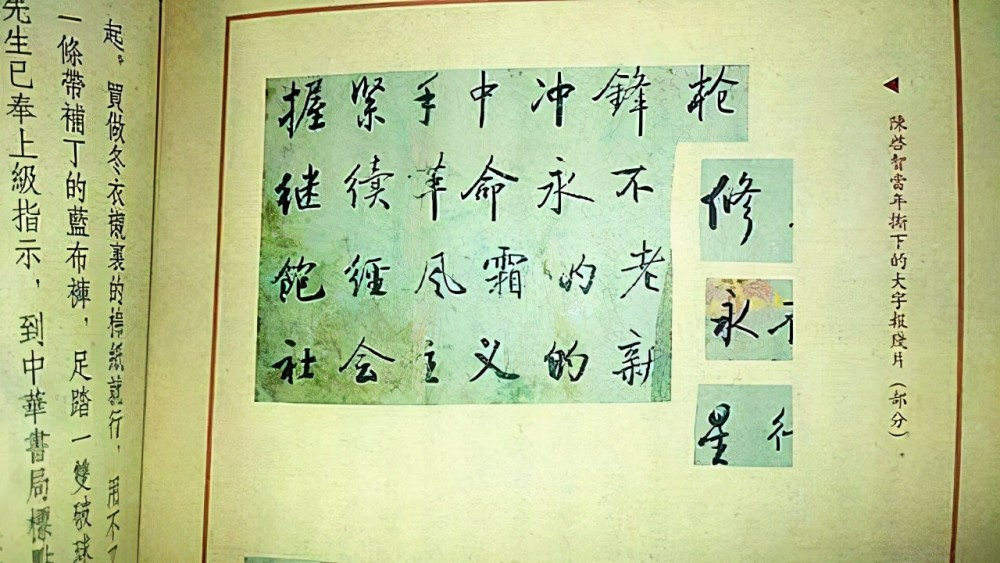 握緊手中冲鋒枪
继續革命永不
飽經风霜的老
社会主义的新
修
永不
星
陳啓智當年撕下的大字报殘片（部分）
起。買做冬衣襯裏的棉紙就行，用不了
一條帶補丁的藍布褲，足踏一雙破球
先生已奉上級指示，到中華書局標點